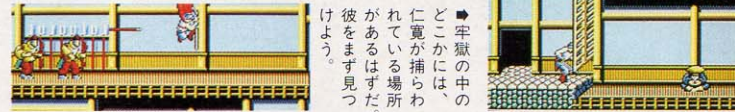 ➡牢獄の中の
どこかには、
仁寛が捕らわ
れている場所
があるはずだ。
彼をまず見つ
けよう。